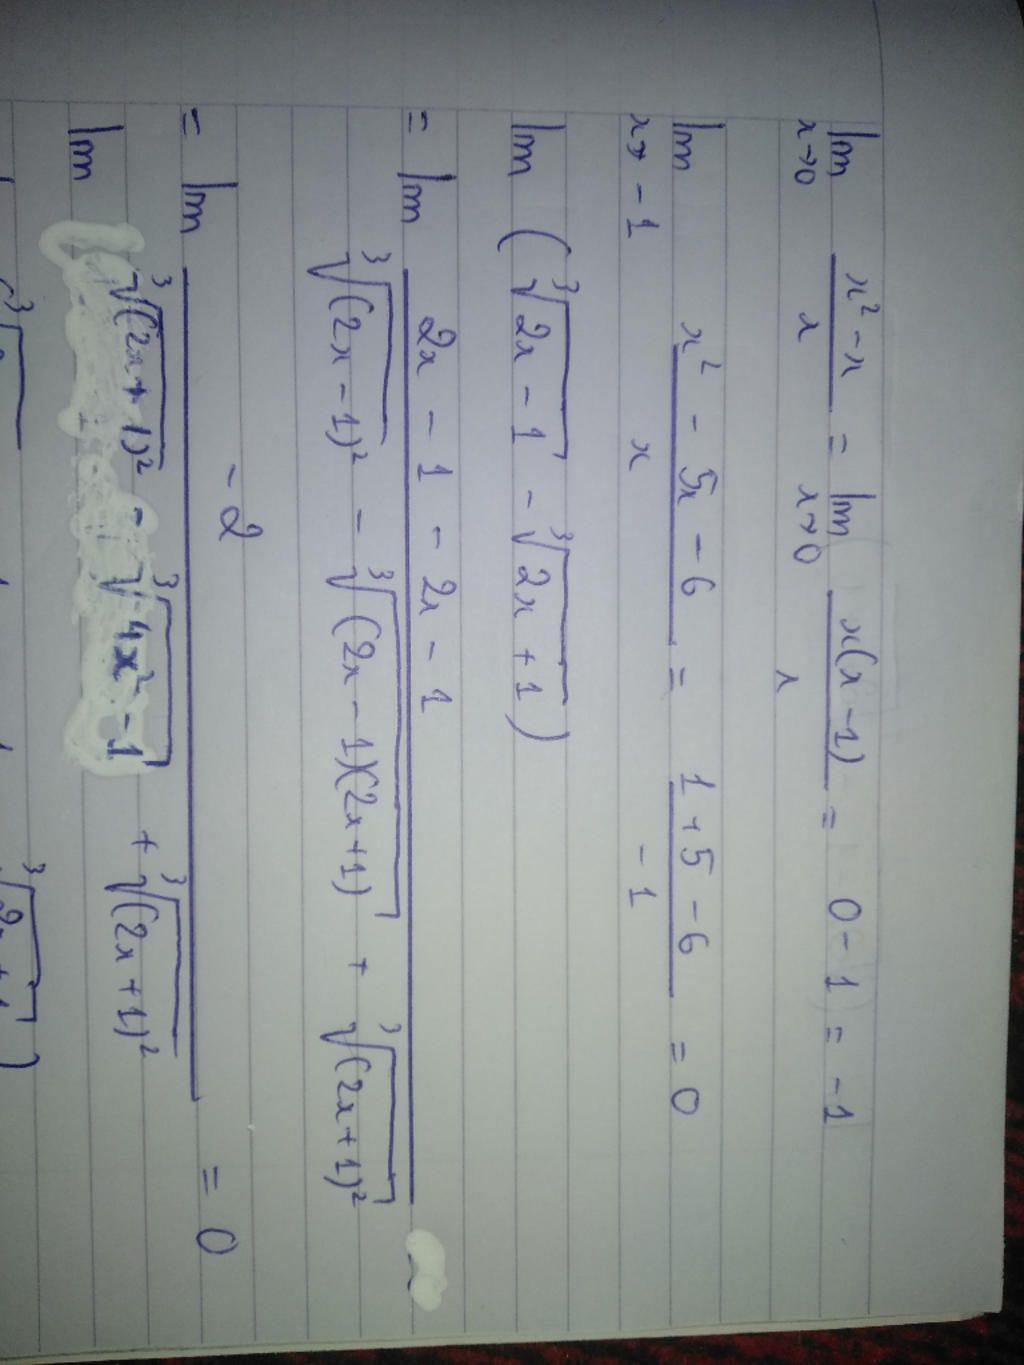 lim x→0 x² - x / x = lim x→0 x(x - 1) / x = 0 - 1 = -1
lim x→ -1 x² - 5x - 6 / x = 1 + 5 - 6 / -1 = 0
lim (∛2x - 1 - ∛2x + 1)
= lim 2x - 1 - 2x - 1 / ∛(2x - 1)² - ∛(2x - 1)(2x + 1) + ∛(2x + 1)²
= lim -2 / ∛(2x + 1)² - ∛4x² - 1 + ∛(2x + 1)² = 0
lim